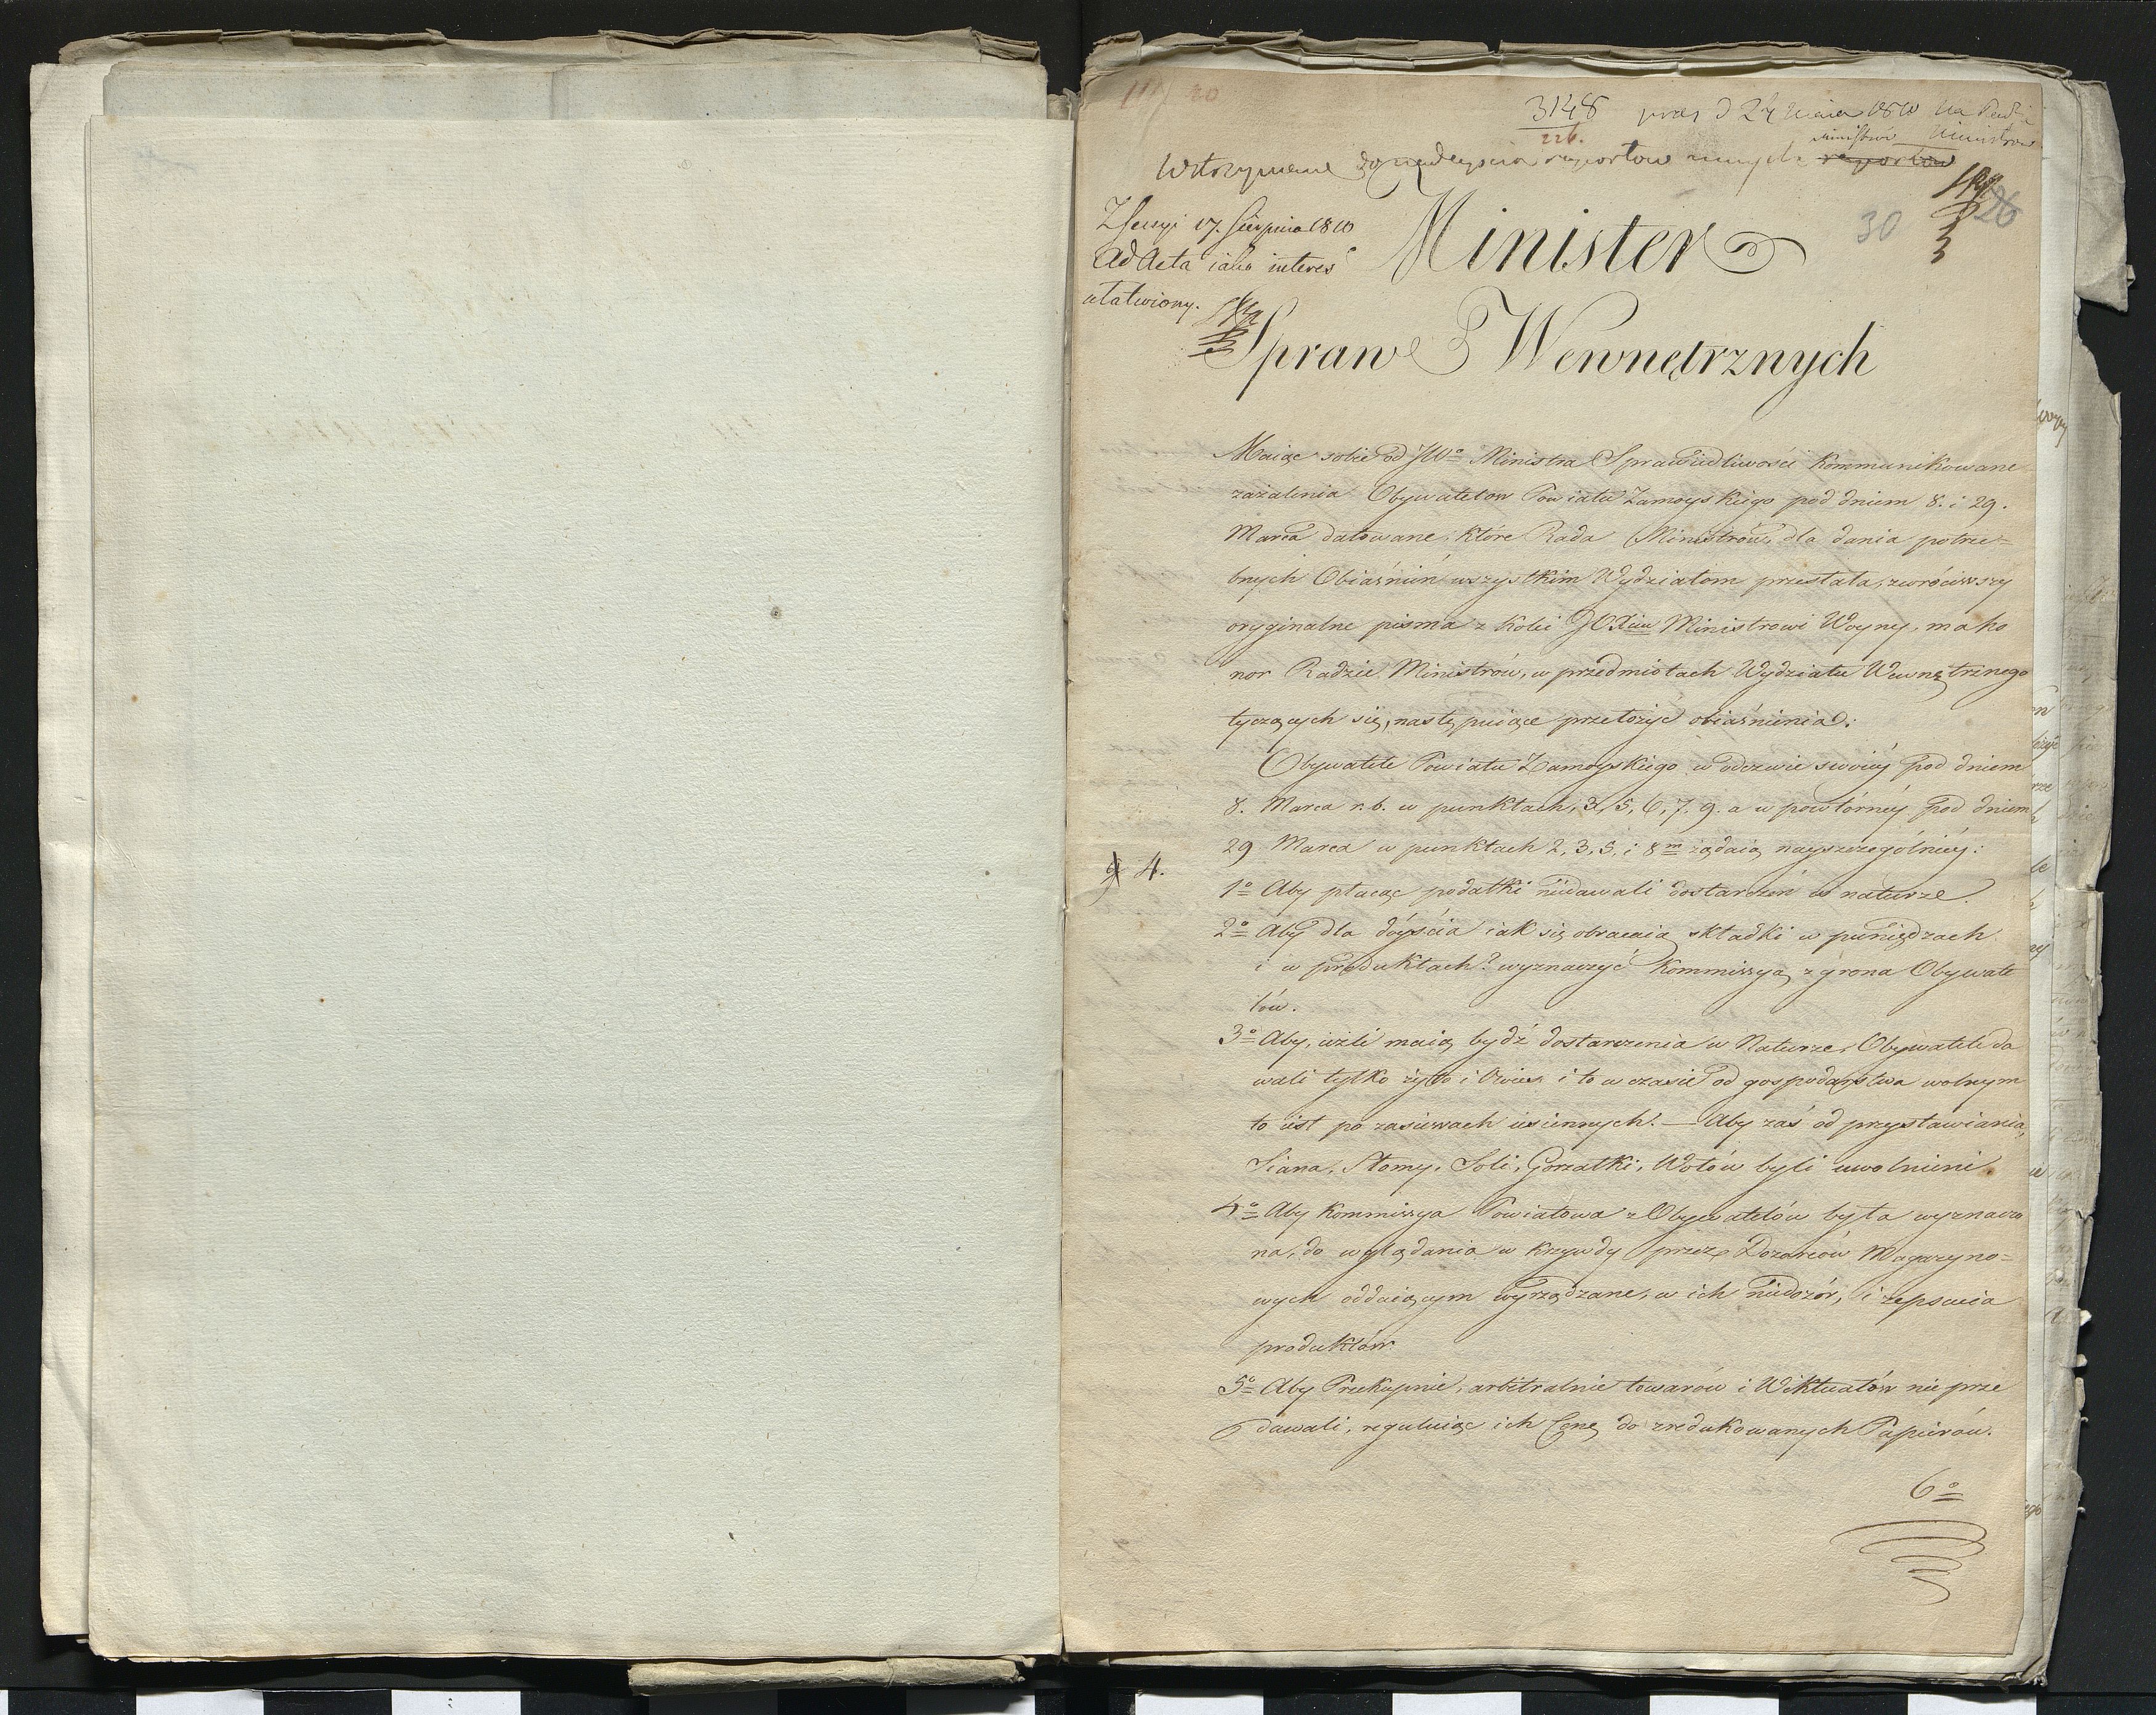 3148 pras d 24 Maia 1810 na Radzie
226. Ministrów
Wstrzymane do nadeyścia raportów innych raportów
Ministrów
30 26
Z Sessyi 17. Sierpnia 1810
Ad Acta iako interes
ułatwiony.
Minister
Spraw Wewnętrznych
Maiąc sobie od JWo Ministra Sprawiedliwości kommunikowane
zażalenia Obywatelow Powiatu Zamoyskiego pod dniem 8. i 29.
Marca datowane, które Rada Ministrów, dla dania potrze=
bnych Obiaśnień wszystkim Wydziałom przesłała, zwróciwszy
oryginalne pisma z kolei JOXciu Ministrowi Woyny, ma ho
nor Radzie Ministrów, w przedmiotach Wydziału Wewnętrznego
tyczących się, następuiące przełożyć obiaśnienia:
Obywatele Powiatu Zamoyskiego w odezwie swoiéy pod dniem
8. Marca r. b. w punktach, 3, 5, 6, 7. 9. a w powtórnéy pod dniem
29 Marca w punktach 2, 3, 5, i 8m żądaią nayszczególniéy:
4.
1o Aby płacąc podatki niedawali dostarczeń w naturze.
2o Aby dla dóyścia iak się obracaią składki w pieniędzach
i w produktach? wyznaczyć Kommissyą z grona Obywate
lów.
3o Aby, ieżli maią bydź dostarczenia w Naturze, Obywatele da
wali tylko żyto i Owies i to w czasie od gospodarstwa wolnym
to iest po zasiewach iesiennych. — Aby zaś od przystawiania,
Siana, Słomy, Soli, Gorzałki, Wołów byli uwolnieni.
4o Aby Kommissya Powiatowa z Obywatelów była wyznaczo
na, do wglądania w krzywdy przez Dozorców Magazyno=
wych oddaiącym wyrządzane, w ich niedozór, i zepsucia
produktów.
5o Aby Przekupnie, arbitralnie towarów i Wiktuałów nie prze
dawali, reguluiąc ich Cenę do zredukowanych Papierów.
6o